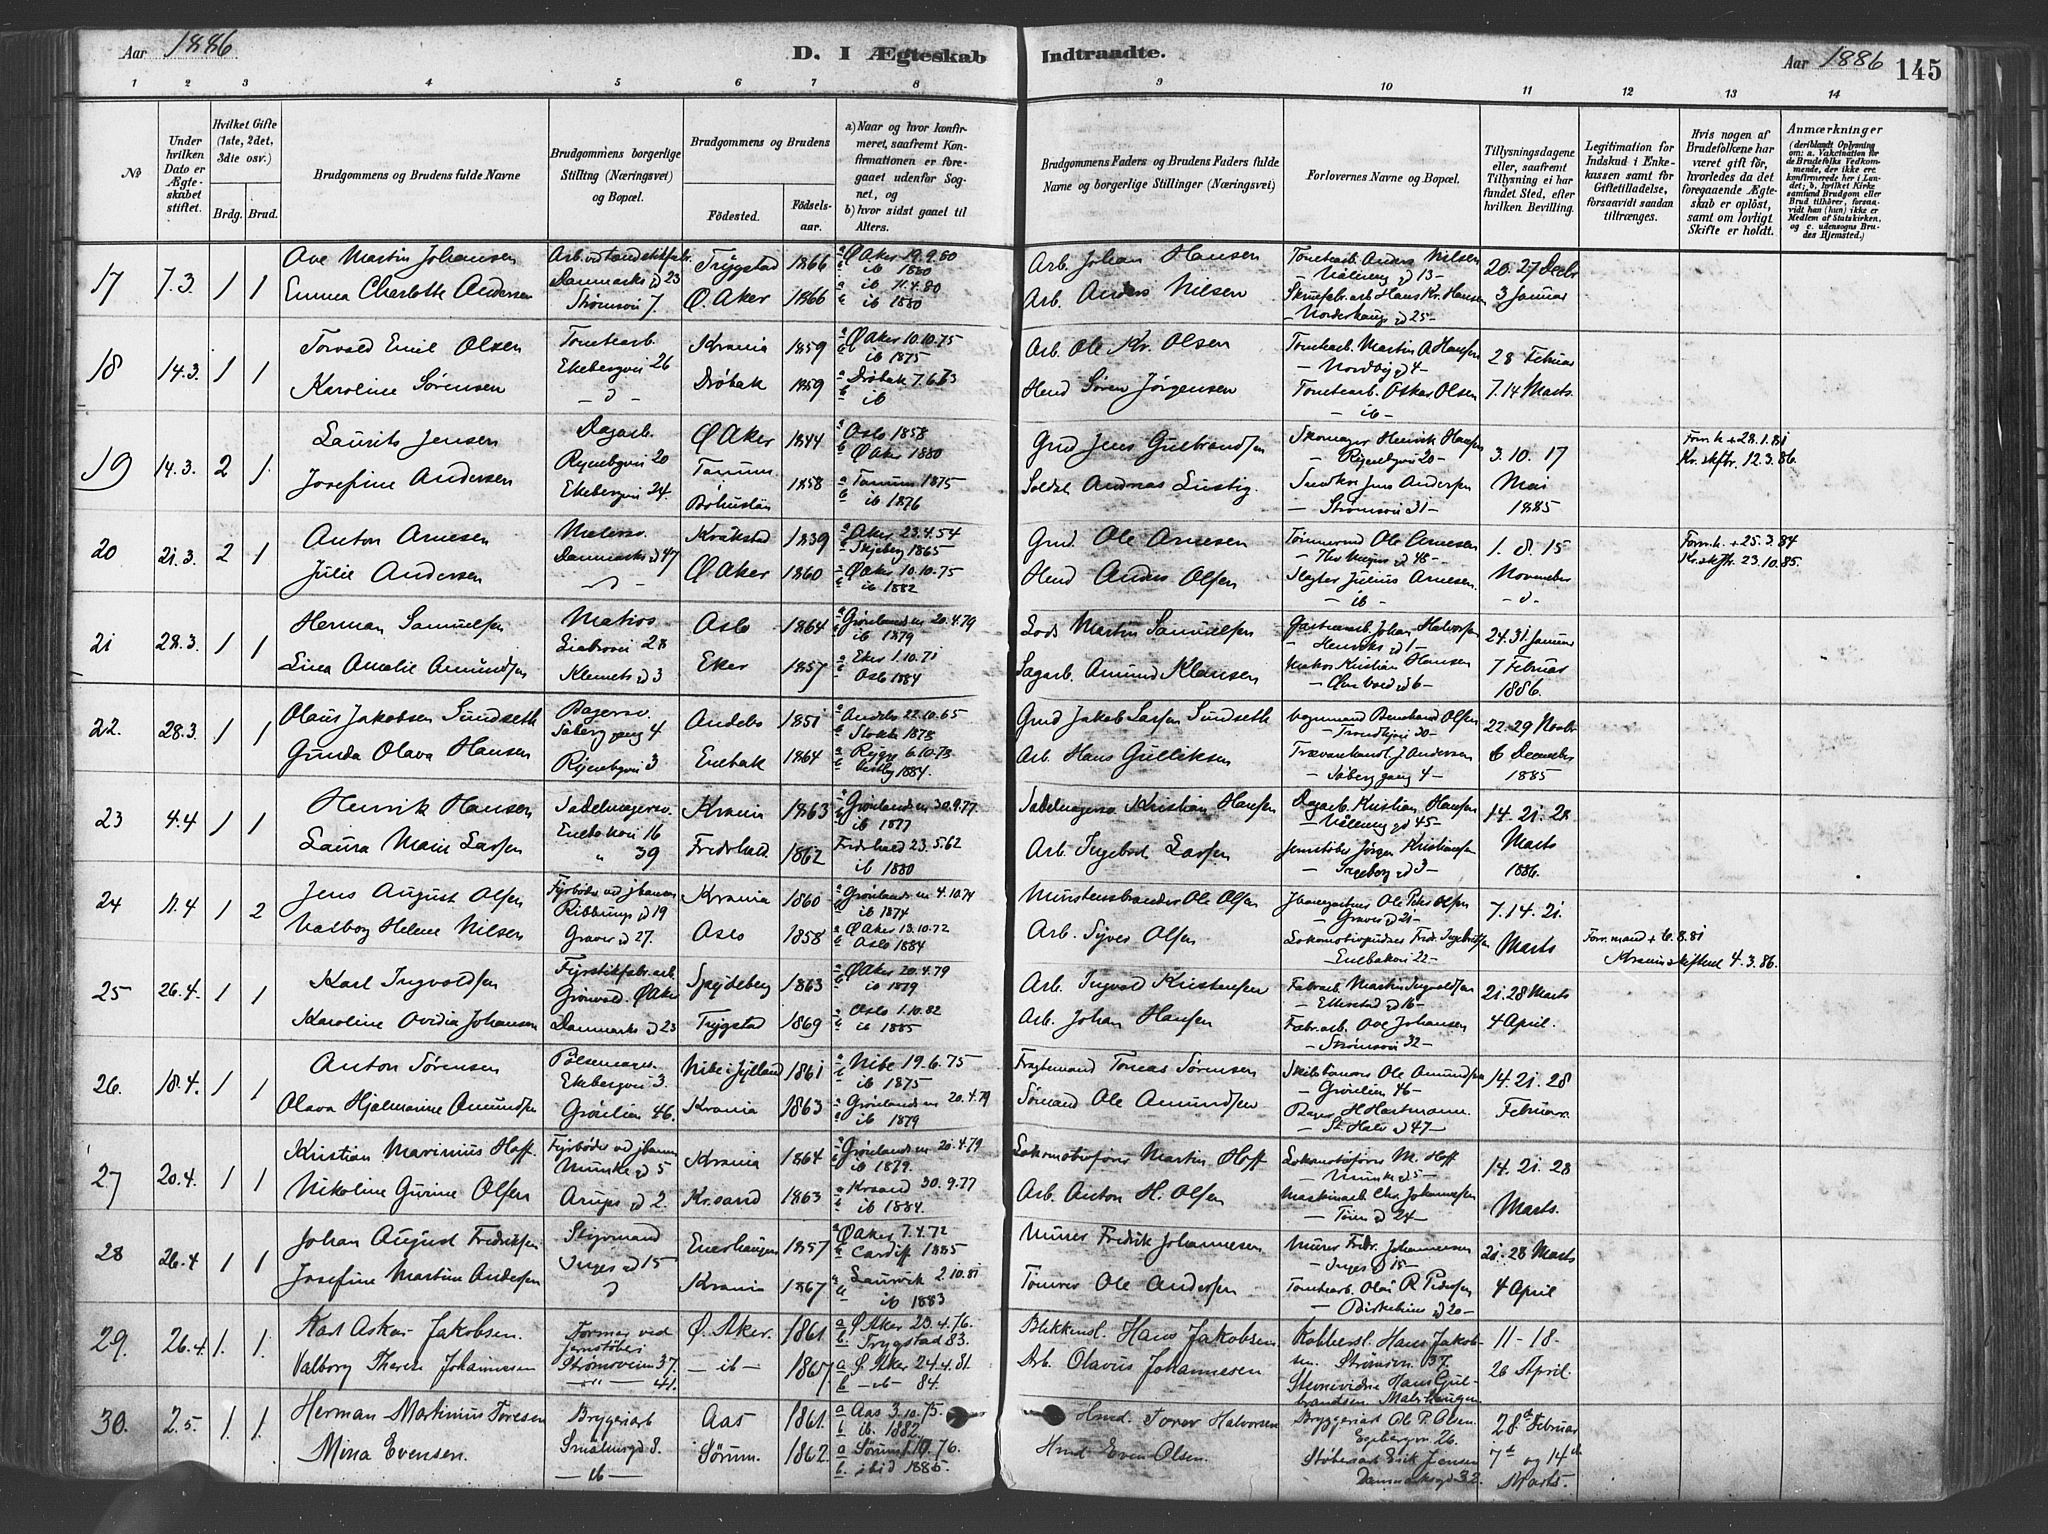 Aar 1886
D. I Ægteskab Indtraadte.
Aar 1886 145
1 2 3 4 5 6 7 8 9 10 11 12 13 14
No
Under hvilken Dato er Ægteskabet stiftet.
Hvilket Gifte (1ste, 2det, 3die osv.)
Brdg. Brud.
Brudgommens og Brudens fulde Navne
Brudgommens borgerlige Stilling (Næringsvei) og Bopæl.
Brudgommens og Brudens
Födested. Födselsaar.
a) Naar og hvor konfirmeret, saafremt Konfirmationen er foregaaet udenfor Sognet, og
b) hvor sidst gaaet til Alters.
Brudgommens Faders og Brudens Faders fulde Navne og borgerlige Stillinger (Næringsvei)
Forlovernes Navne og Bopæl.
Tillysningsdagene eller, saafremt Tillysning ei har fundet Sted, efter hvilken Bevilling.
Legitimation for Indskud i Enkekassen samt for Giftetilladelse, forsaavidt saadan tiltrænges.
Hvis nogen af Brudefolkene har været gift för, hvorledes da det foregaaende Ægteskab er oplöst, samt om lovligt Skifte er holdt.
Anmærkninger (deriblandt Oplysning om: a. Vakcination for de Brudefolks Vedkommende, der ikke ere konfirmerede her i Landet; b. hvilket Kirkesamfund Brudgom eller Brud tilhörer, forsaavidt han (hun) ikke er Medlem af Statskirken, og c. udensogns Brudes Hjemsted.)
17 7.3. 1 1
Ave Martin Johansen Trygstad 1866 Ø Aker 19.9.80 ib 1880 Arb. Johan Hansen Tomtearb. Anders Nilsen 20. 27 Decbr
Emma Charlotte Andersen Danmarks gd 23 Strømsvei 7. Ø. Aker 1866 ib 11.4.80 ib 1880 Arb. Anders Nilsen Hans Kr. Hansen 3 Januar
18 14.3. 1 1
Torvald Emil Olsen Tomtearb. Ekebergvei 26 Krania 1859 Ø Aker 10.10.75 ib 1875 Arb. Ole Kr. Olsen Tomtearb. Martin A Hansen Nordbygd 4 28 Februar
Karoline Sørensen Drøbak 1859 Drøbak 7.6.73 ib Hmd Søren Jørgensen Tomtearb. Oskar Olsen ib 7.14 Marts.
19 14.3. 2 1.
Laurits Jensen Dagarb. Ryenbgvei 20 Ø Aker 1844 Oslo 1858 Ø Aker 1880 Gmd Jens Gulbrandsen Skomager Henrik Hansen Ryenbgvei 20 3.10.17 Form. h. + 28.1.81 Kr. skftr. 12.3.86.
Josefine Andersen Ekebergvei 24. Tanum Bohuslän 1858 Tanum 1875 ib 1876 Soldat Andreas Lustig Jens Andersen Strømsvei 31 Mai 1885
20 21.3. 2 1
Anton Arnesen Danmarks gd 47 Kråkstad 1839 Aker 23.4.54 Skjeberg 1865 Gmd. Ole Arnesen Tømmermd Ole Arnesen 1. 8. 15 Form. h. + 25.3.84 Kr. skftr. 23.10.85.
Julie Andersen Ø. Aker 1860 Ø Aker 10.10.75 ib 1882 Hmd Anders Olsen Slagter Julius Arnesen ib November
21 28.3. 1 1
Herman Samuelsen Matros Liabrovei 28 Oslo 1864 Grønlands m 20.4.79 ib 1879 Lods Martin Samuelsen Johan Halvorsen 24.31 Januar
Lina Amalie Amundsen Klemets gd 3 Eker 1857 Eker 1.10.71 Oslo 1884 Sagarb. Amund Klausen Matros Kristian Hansen 7 Februar 1886.
22. 28.3. 1 1
Olaus Jakobsen Sundseth Bagersv. Søberg gang 4 Andebo 1851 Andebo 22.10.65 Stokke 1878 Gmd Jakob Larsen Sundseth Vognmand Bernhard Olsen Trondhjvei 30 22.29 Novbr
Gunda Olava Hansen Ryenbgvei 3 Enebak 1864 Rygge 6.10.78 Vestby 1884. Arb. Hans Gulliksen Trævarehandl. J Andersen Søberg gang 4 6 December 1885
23 4.4 1 1
Henrik Hansen Sadelmagersv. Enebakvei 16 Krania 1863 Grønlands m 30.9.77 ib 1877 Sadelmagersv. Kristian Hansen Dagarb. Kristian Hansen Vålereng gd 45 14.21.28
Laura Marie Larsen " 39 Fredrhald. 1862 Fredrhald 23.5.62 ib 1880 Arb. Ingebret Larsen Jernstøber Jørgen Kristiansen Ingeborg gd 3 Marts 1886.
24 11.4 1 2
Jens August Olsen Fyrbøder ved jbanen Ribbungs gd 19 Krania 1860 Grønlands m 4.10.74 ib 1874 Murstensbrænder Ole Olsen Ole Peter Olsen Graver gd 21 7.14.21.
Valborg Helene Nilsen Graver gd 27. Oslo 1858 Ø Aker 13.10.72 Oslo 1884 Arb. Syver Olsen Lokomotivpudser Fredr. Ingebretsen Enebakvei 22 Marts Forr. mand + 6.8.81 Krania skifteret 4.3.86.
25 26.4. 1 1
Karl Ingvoldsen Fyrstikfabr. arb. Grønvold. Ø Aker Spydeberg 1863 Ø Aker 20.4.79 ib 1879 Arb. Ingvold Kristensen Fabrarb. Martin Ingvoldsen Etterstad gd 16 21.28 Marts
Karoline Ovidia Johansen Danmarks gd 23 Trygstad 1869 Oslo 1.10.82 ib 1885 Arb. Johan Hansen Fabr. arb. Ave Johansen Strømsvei 32 4 April.
26. 18.4. 1 1
Anton Sørensen Pølsemager. Ekebergvei 3. Nibe i Jylland 1861 Nibe 19.6.75 ib 1875 Fragtemand Tomas Sørensen Ole Amundsen Grønlien 46 14.21.28
Olava Hjalmarine Amundsen Grønlien 46. Krania 1863 Grønlands m 20.4.79 ib 1879 Sømand Ole Amundsen Bager H Hartmann. St. Halv gd 47 Februar.
27 20.4. 1 1
Kristian Marinius Hoff. Fyrbøder ved jbanen Munke gd 5 Krania 1864 Grønlands m 20.4.79 ib 1879. Lokomotivfører Martin Hoff Lokomotivfører M. Hoff Munke gd 5 14.21.28
Nikoline Gurine Olsen Arups gd 2. Kr.sand 1863 Krsand 30.9.77 ib 1884. Arb. Anton H. Olsen Maskinarb. Chr. Johannesen Tøien gd 24 Marts.
28 26.4 1 1
Johan August Fredriksen Styrmand Inges gd 15 Enerhaugen 1857 Ø Aker 7.4.72 Cardiff 1885 Murer Fredrik Johannesen Murer Fredr. Johannesen Inges gd 15 21.28 Marts
Josefine Martine Andersen Krania 1867 Laurvik 2.10.81 ib 1883 Tømrer Ole Andersen Tomtearb. Olai R Pedersen Birkeheim gd 20 4 April
29. 26.4. 1. 1.
Karl Askar Jakobsen. Formar ved Jernstøberi Strømsveien 37. Ø. Aker. 1861. a Ø Aker 23.4.76. b. Trygstad 83. Blikkensl. Hans Jakobsen Kobbersl. Hans Jakobsen. Strømsv. 37. 11-18.
Valborg Therese Johannesen — " — 41. — ib — 1867 a Ø. Aker 24.4.81. b — ib — 84. Arb. Olavus Johannesen Hans Gulbrandsen Malerhaugen 26 April.
30. 2.5. 1. 1.
Herman Martinius Toresen Bryggeriarb Smålensgd 8. Aas 1861. a Aas 3.10.75. b. ib. 1882. Hmd. Torer Halvorsen Bryggeriarb Ole P. Olsen. Egebergvn 26. 28de Februar
Mina Evensen. — ib — Sørum. 1862. a Sørum 1.10.76. b. ibid 1885. Hmd Even Olsen. Støberiarb Erik Jensen Danmarksgd 32. 7de og 14de Marts.